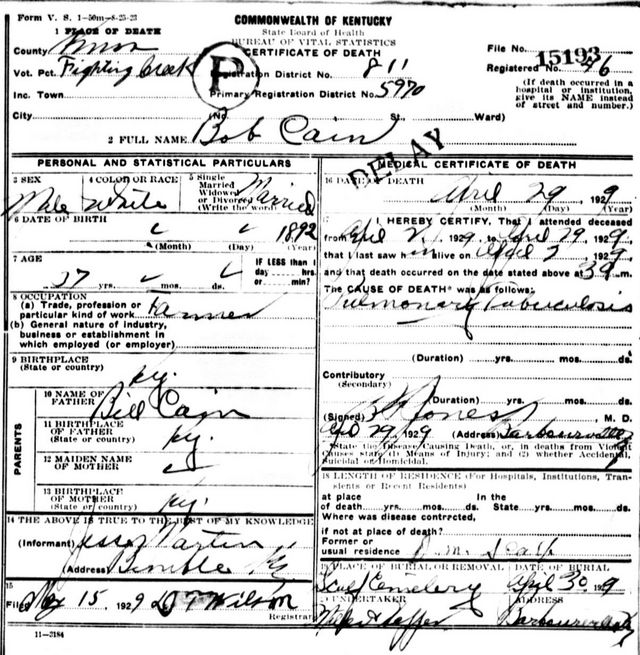 Form V. S. 1-50m-8-25-23
COMMONWEALTH OF KENTUCKY
State Board of Health
BUREAU OF VITAL STATISTICS
CERTIFICATE OF DEATH
1 PLACE OF DEATH
County Knox
File No. 15193
Vot. Pct. Fighting Creek
Registration District No. 811
Registered No. 76
Inc. Town
Primary Registration District No. 5970
(If death occurred in a hospital or institution, give its NAME instead of street and number.)
City (No. St. Ward)
2 FULL NAME Bob Cain
DELAY
PERSONAL AND STATISTICAL PARTICULARS
3 SEX Male
4 COLOR OR RACE White
5 Single Married Widowed or Divorced (Write the word) Married
6 DATE OF BIRTH 1892
(Month) (Day) (Year)
7 AGE 37 yrs. mos. ds.
IF LESS than 1 day hrs. or min.?
8 OCCUPATION
(a) Trade, profession or particular kind of work Farmer
(b) General nature of industry, business or establishment in which employed (or employer)
9 BIRTHPLACE
(State or country) Ky.
PARENTS
10 NAME OF FATHER Bill Cain
11 BIRTHPLACE OF FATHER
(State or country) Ky.
12 MAIDEN NAME OF MOTHER
13 BIRTHPLACE OF MOTHER
(State or country) Ky.
14 THE ABOVE IS TRUE TO THE BEST OF MY KNOWLEDGE
(Informant) Jesse Martin
(Address) Bimble Ky
15
Filed May 15 1929 Wilson
Registrar
11-3184
MEDICAL CERTIFICATE OF DEATH
16 DATE OF DEATH April 29 1929
(Month) (Day) (Year)
17 I HEREBY CERTIFY, That I attended deceased
from April 2, 1929, to April 29 1929,
that I last saw him alive on April 1929,
and that death occurred on the date stated above at m.
The CAUSE OF DEATH* was as follows:
Pulmonary Tuberculosis
(Duration) yrs. mos. ds.
Contributory
(Secondary)
(Duration) yrs. mos. ds.
(Signed) Jones, M. D.
Apr 29 1929 (Address) Barbourville Ky
*State the Disease Causing Death, or, in deaths from Violent Causes state (1) Means of Injury; and (2) whether Accidental, Suicidal or Homicidal.
18 LENGTH OF RESIDENCE (For Hospitals, Institutions, Transients or Recent Residents)
at place of death yrs. mos. ds. In the State yrs. mos. ds.
Where was disease contrrcted,
if not at place of death?
Former or usual residence
19 PLACE OF BURIAL OR REMOVAL DATE OF BURIAL
Cemetery April 30 1929
20 UNDERTAKER ADDRESS
Barbourville Ky